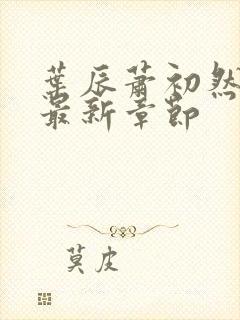 葉辰蕭初然
最新章節
莫皮